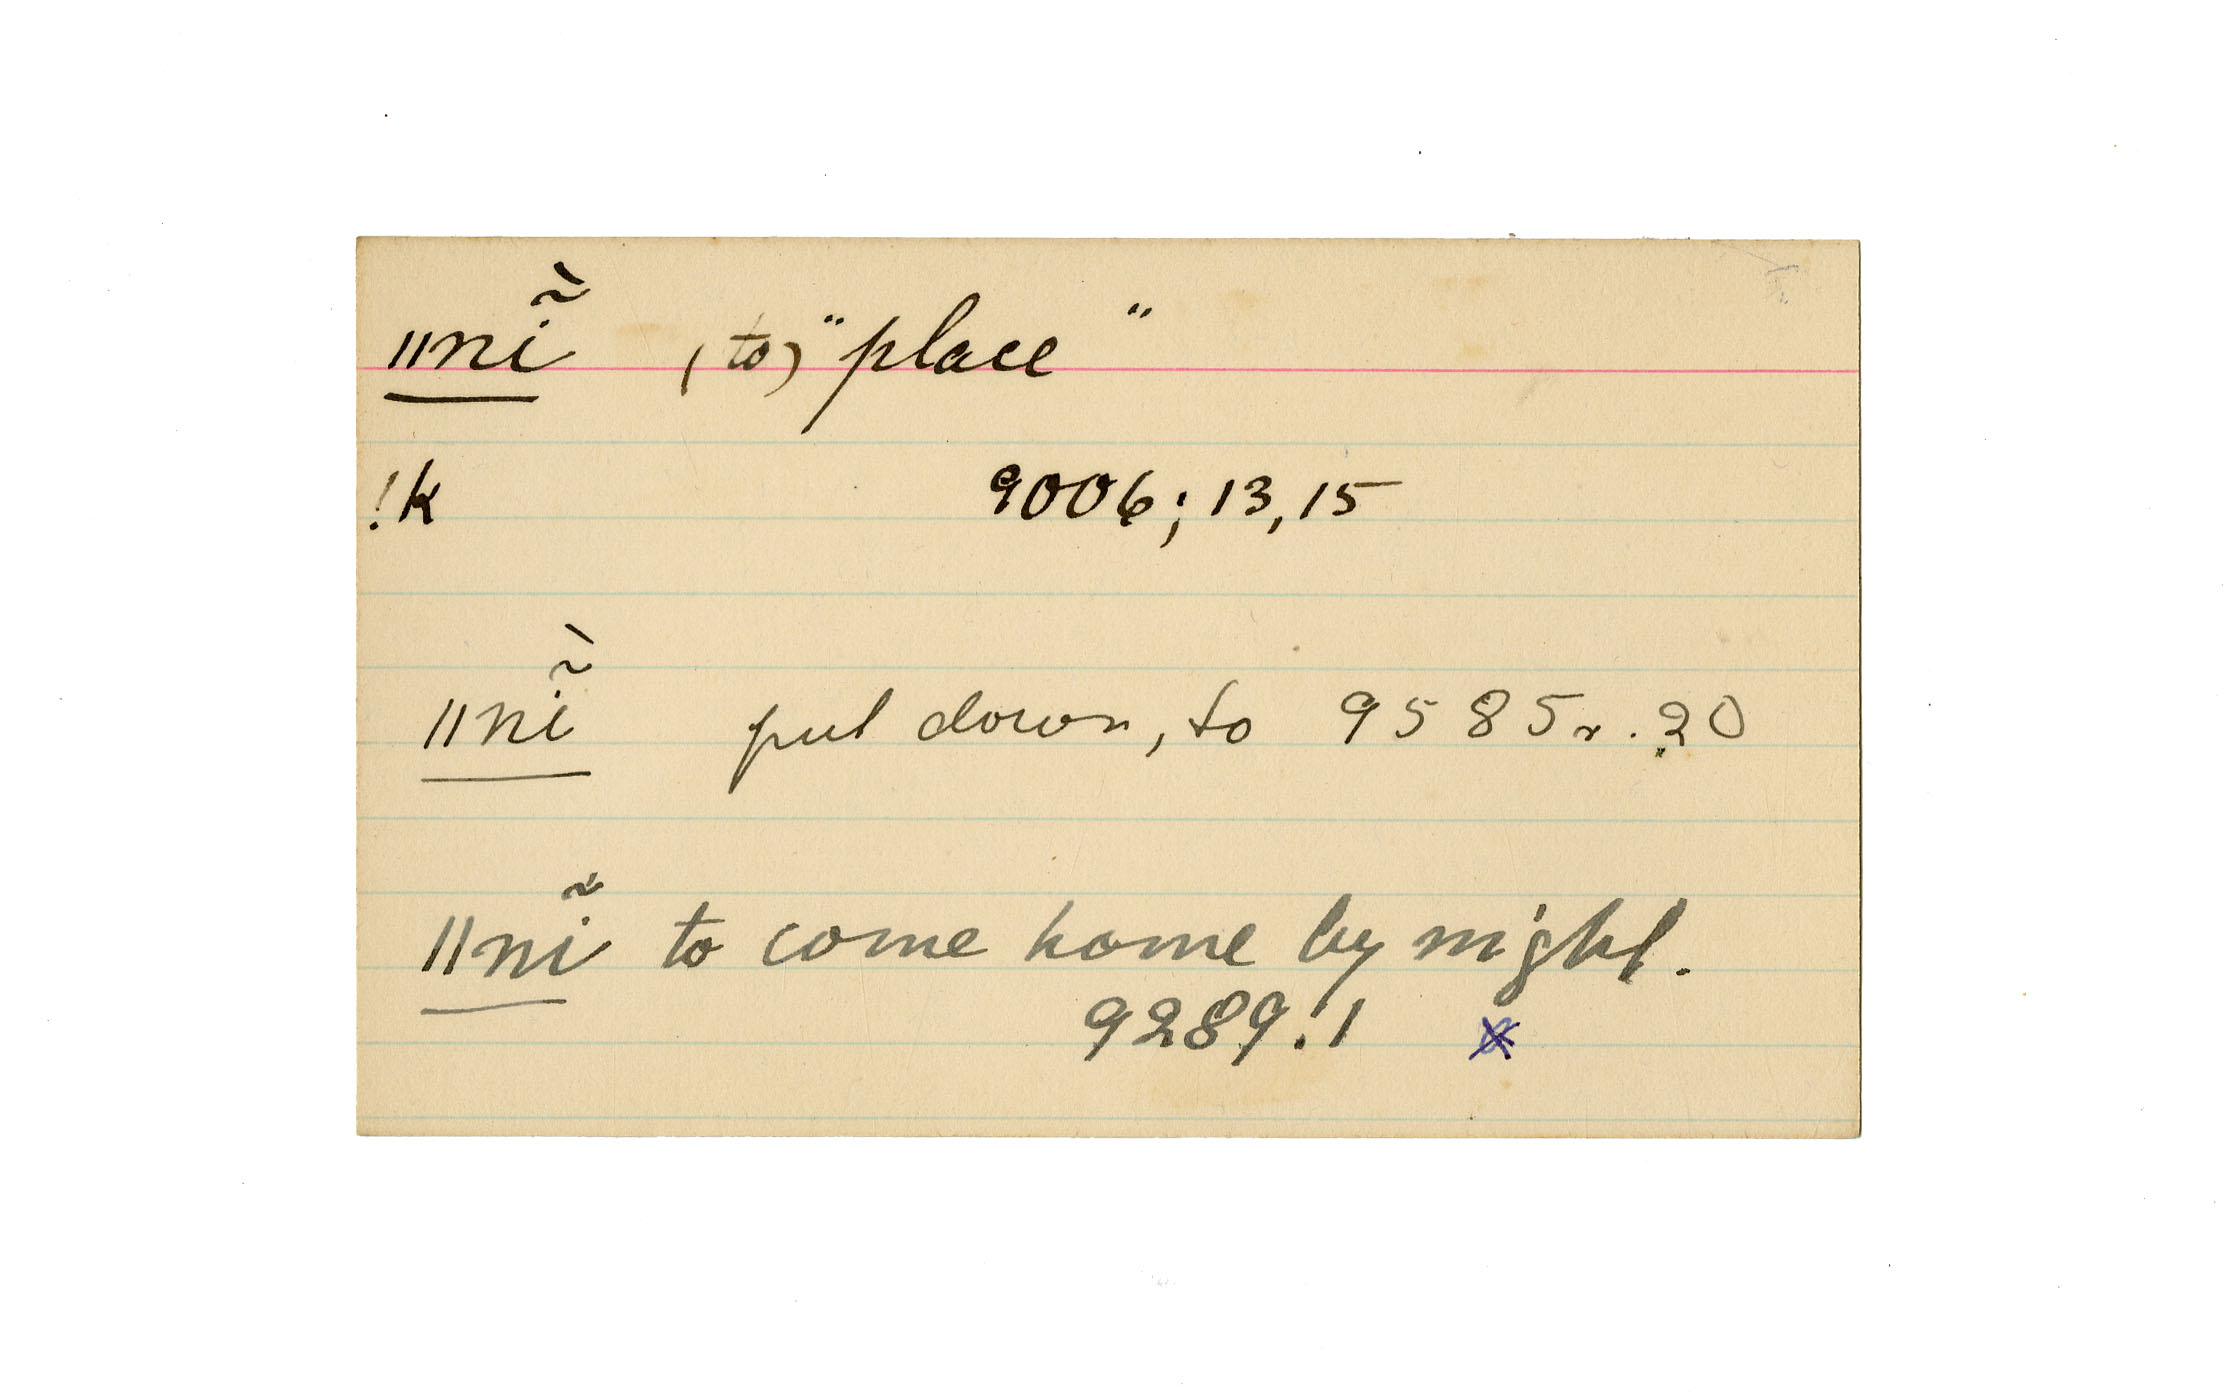 ǁnĩ̀ (to) "place"
!k 9006; 13, 15
ǁnĩ̀ put down, to 9585r. 20
ǁnĩ to come home by night.
9289.1